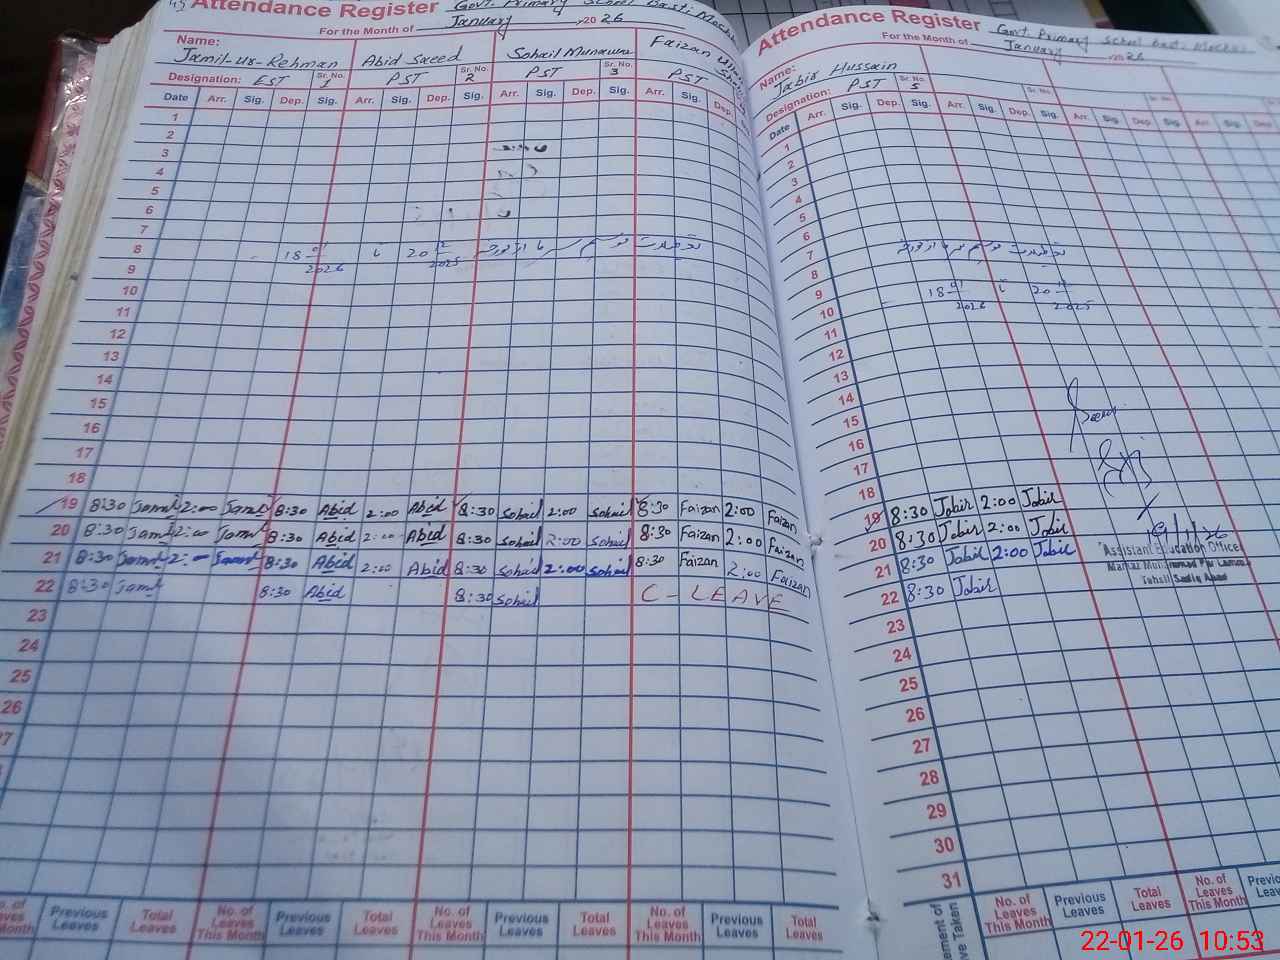 Attendance Register Govt. Primary School Basti Mochi
For the Month of January 2026
Name: Jamil-us-Rehman Abid Saeed Sohail Munawar Faizan
Designation: EST Sr. No. 1 PST Sr. No. 2 PST Sr. No. 3 PST
Date Arr. Sig. Dep. Sig. Arr. Sig. Dep. Sig. Arr. Sig. Dep. Sig. Arr. Sig. Dep.
1
2
3
4
5
6
7
8 تعطیلات موسم سرما از مورخہ 20 12 2025 تا 18 01 2026
9
10
11
12
13
14
15
16
17
18
19 8:30 Jamil 2:00 Jamil 8:30 Abid 2:00 Abid 8:30 Sohail 2:00 Sohail 8:30 Faizan 2:00 Faizan
20 8:30 Jamil 2:00 Jamil 8:30 Abid 2:00 Abid 8:30 Sohail 2:00 Sohail 8:30 Faizan 2:00 Faizan
21 8:30 Jamil 2:00 Jamil 8:30 Abid 2:00 Abid 8:30 Sohail 2:00 Sohail 8:30 Faizan 2:00 Faizan
22 8:30 Jamil 8:30 Abid 8:30 Sohail C-LEAVE
23
24
25
26
27
No. of Leaves Previous Leaves Total Leaves No. of Leaves This Month Previous Leaves Total Leaves No. of Leaves This Month Previous Leaves Total Leaves No. of Leaves This Month Previous Leaves Total Leaves
Attendance Register Govt Primary School Basti Mochi
For the Month of January 2026
Name: Jabir Hussain
Designation: PST Sr. No. 5 Sr. No. Sr. No.
Date Arr. Sig. Dep. Sig. Arr. Sig. Dep. Sig. Arr. Sig. Dep. Sig. Arr. Sig. Dep.
1
2
3
4
5
6
7 تعطیلات موسم سرما از مورخہ
8
9 20 12 2025 تا 18 01 2026
10
11
12
13
14
15
16
17
18
19 8:30 Jabir 2:00 Jabir
20 8:30 Jabir 2:00 Jabir
21 8:30 Jabir 2:00 Jabir
22 8:30 Jabir
19/1/26
Assistant Education Officer
Markaz
Tehsil Sadiq Abad
23
24
25
26
27
28
29
30
31
No. of Leaves This Month Previous Leaves Total Leaves No. of Leaves This Month
22-01-26 10:53